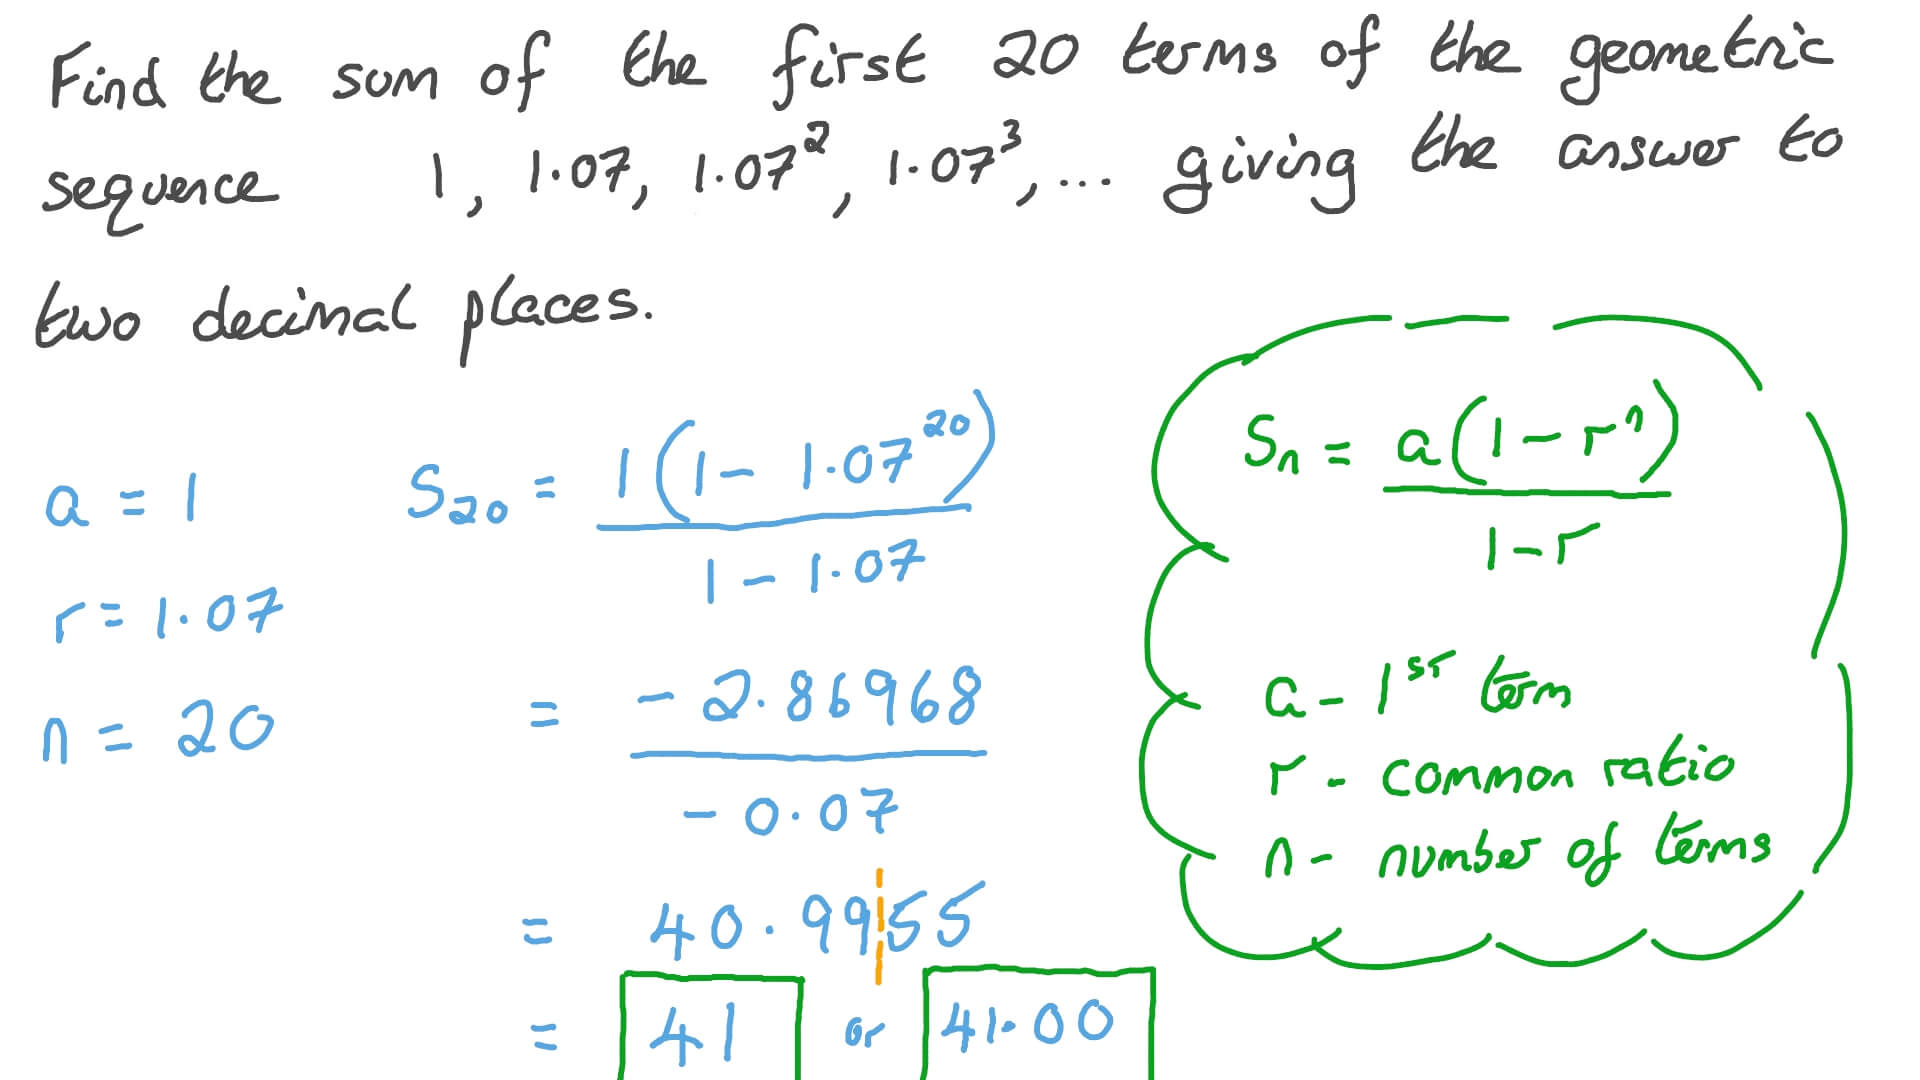 Find the sum of the first 20 terms of the geometric
sequence 1, 1.07, 1.07², 1.07³, ... giving the answer to
two decimal places.
a = 1
r = 1.07
n = 20
S₂₀ = 1(1 - 1.07²⁰)
1 - 1.07
= -2.86968
-0.07
= 40.9955
= 41 or 41.00
Sₙ = a(1 - rⁿ)
1 - r
a - 1ˢᵗ term
r - common ratio
n - number of terms